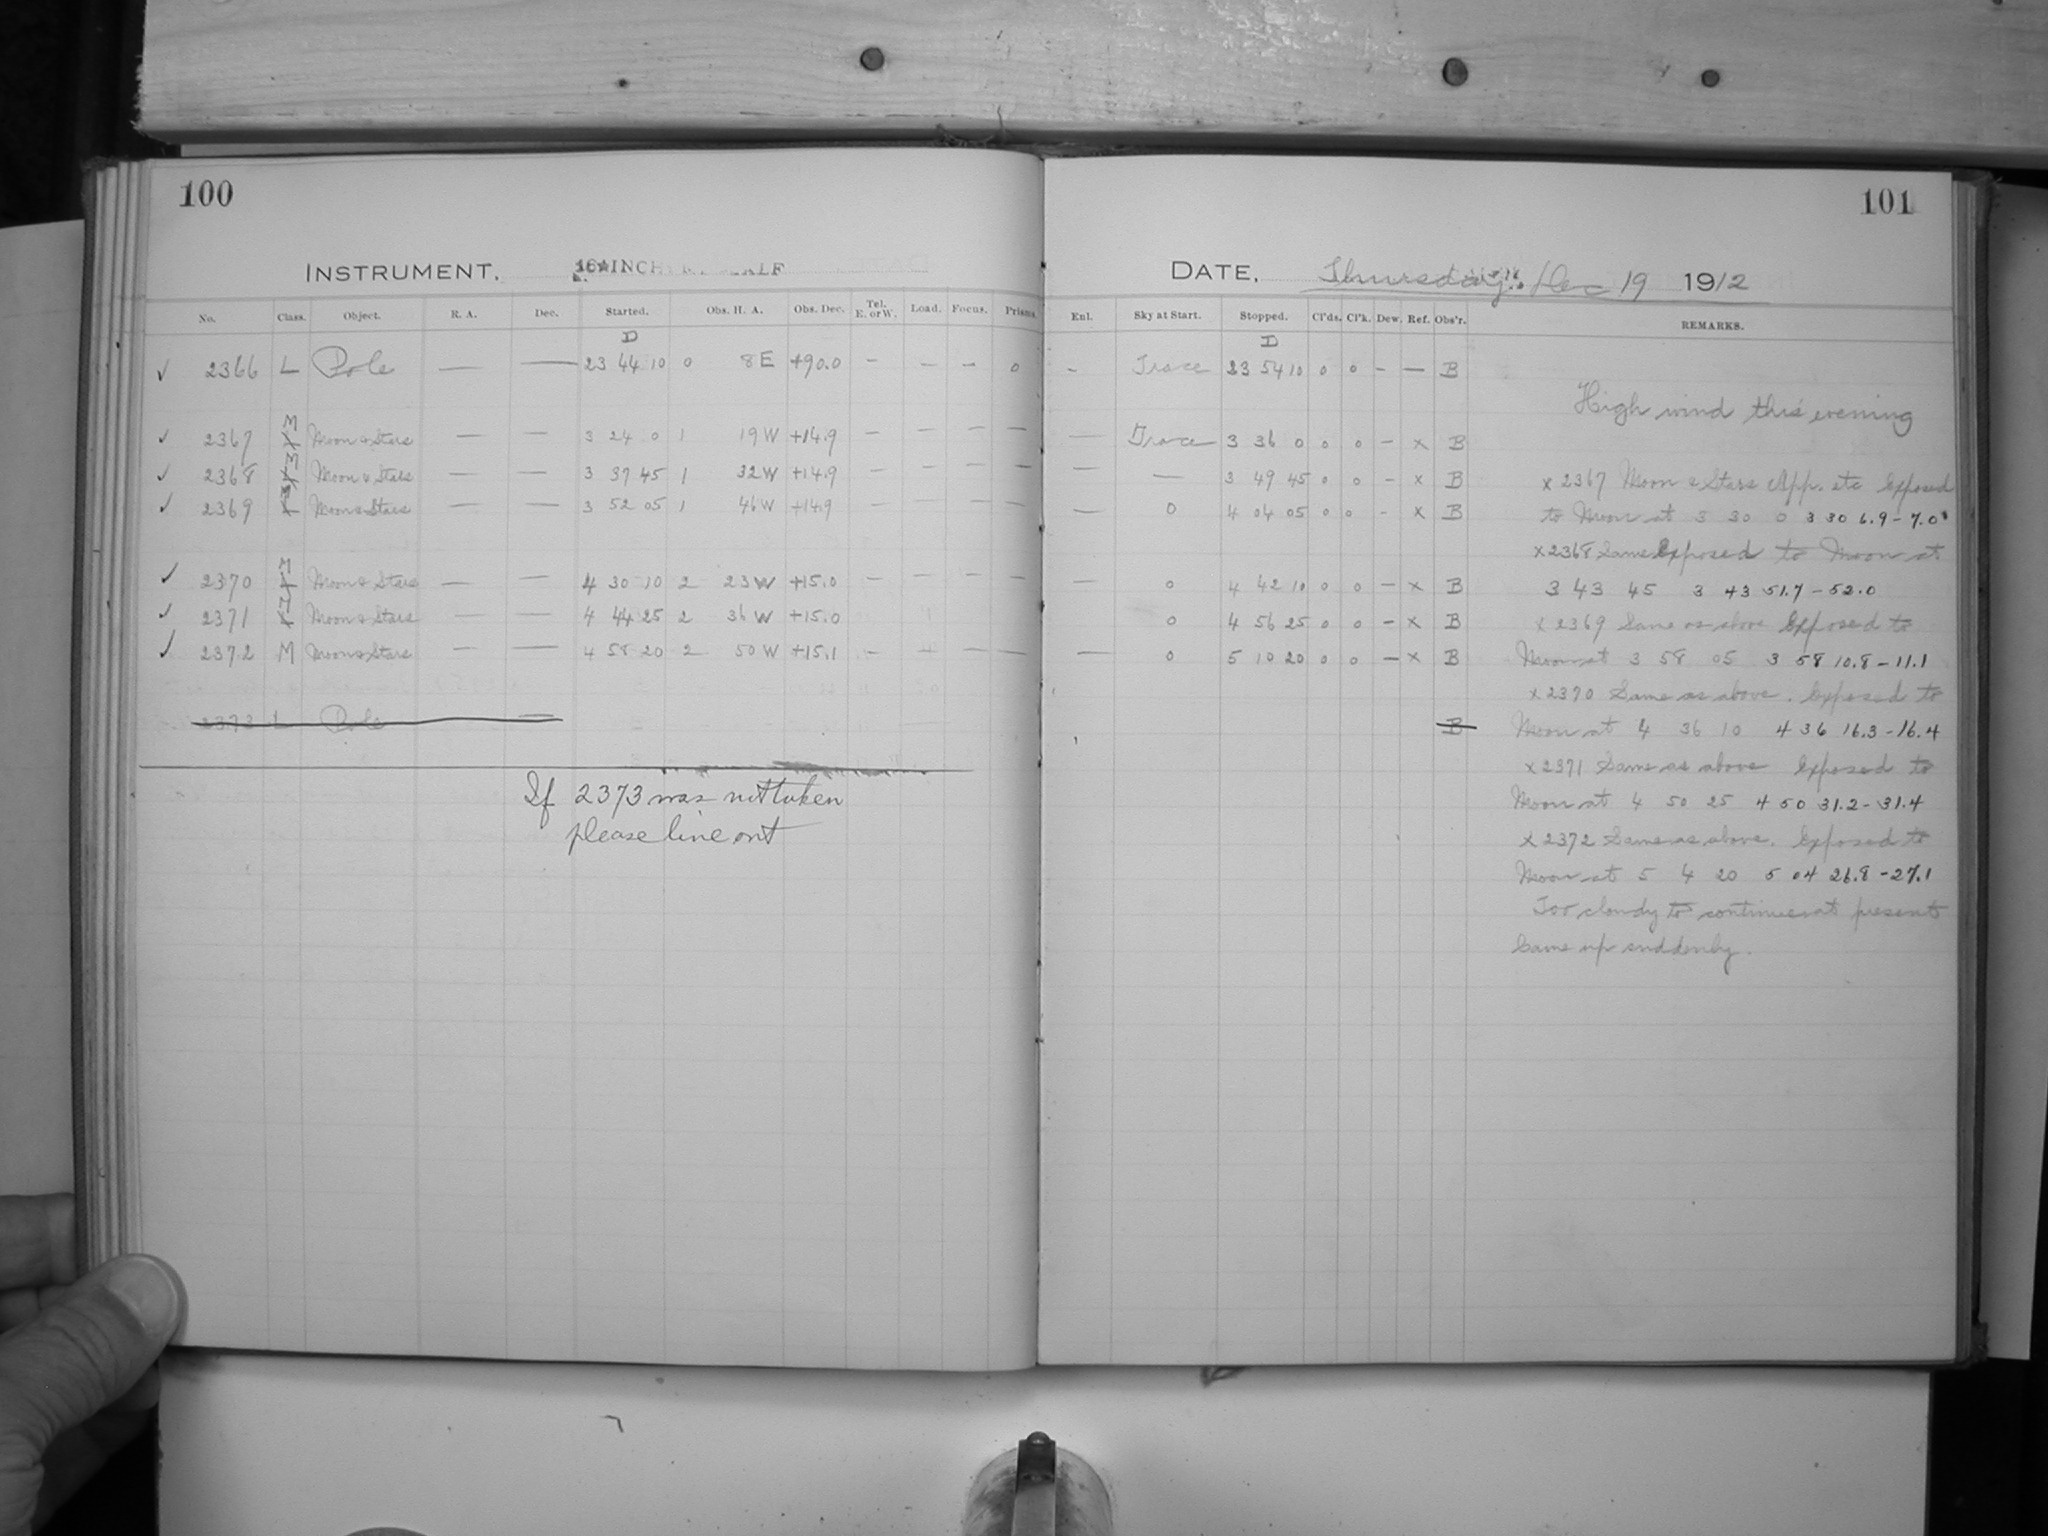 100
INSTRUMENT. 16 INCH METCALF
No. Class. Object. R. A. Dec. Started. Obs. H. A. Obs. Dec. Tel. E. or W. Load. Focus. Prisms
D
✓ 2366 L Pole — — 23 44 10 0 8 E +90.0 — — — 0
✓ 2367 3 Moon & Stars — — 3 24 0 1 19 W +14.9 — — — —
✓ 2368 3 Moon & Stars — — 3 37 45 1 32 W +14.9 — — — —
✓ 2369 Moon & Stars — — 3 52 05 1 46 W +14.9 — — —
✓ 2370 Moon & Stars — — 4 30 10 2 23 W +15.0 — — — —
✓ 2371 Moon & Stars — — 4 44 25 2 36 W +15.0
✓ 2372 M Moon & Stars — — 4 58 20 2 50 W +15.1 — — —
2373 L Pole —
If 2373 was not taken
please line out
101
DATE. Thursday Dec 19 1912
Enl. Sky at Start. Stopped. Cl'ds. Cl'k. Dew. Ref. Obs'r. REMARKS.
D
- Trace 23 54 10 0 0 — — B
— Trace 3 36 0 0 0 — x B
— — 3 49 45 0 0 — x B
— 0 4 04 05 0 0 - x B
— 0 4 42 10 0 0 — x B
0 4 56 25 0 0 — x B
— 0 5 10 20 0 0 — x B
B
High wind this evening
x 2367 Moon & Stars App. etc Exposed
to Moon at 3 30 0 3 30 6.9 - 7.0
x 2368 Same Exposed to Moon at
3 43 45 3 43 51.7 - 52.0
x 2369 Same as above Exposed to
Moon at 3 58 05 3 58 10.8 - 11.1
x 2370 Same as above. Exposed to
Moon at 4 36 10 4 36 16.3 - 16.4
x 2371 Same as above Exposed to
Moon at 4 50 25 4 50 31.2 - 31.4
x 2372 Same as above. Exposed to
Moon at 5 4 20 5 04 26.8 - 27.1
Too cloudy to continue at present
Came up suddenly.